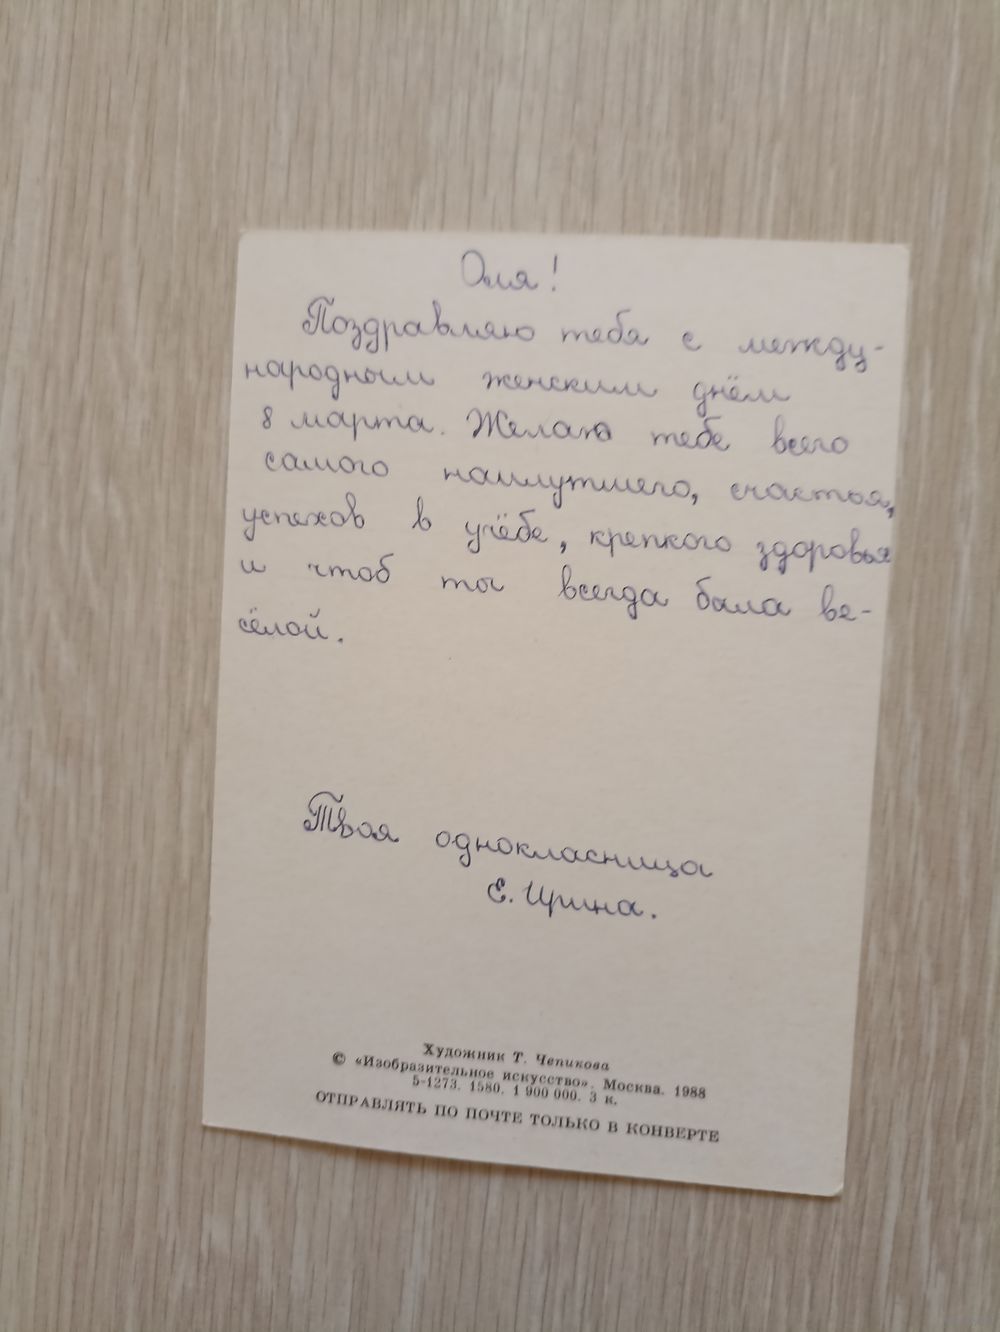 Оля!
Поздравляю тебя с между-
народным женским днём
8 марта. Желаю тебе всего
самого наилутшего, счастья,
успехов в учёбе, крепкого здоровья
и чтоб ты всегда была ве-
сёлой.
Твоя однокласница
Е. Ирина.
Художник Т. Чепикова
© «Изобразительное искусство». Москва. 1988
5-1273. 1580. 1 900 000. 3 к.
ОТПРАВЛЯТЬ ПО ПОЧТЕ ТОЛЬКО В КОНВЕРТЕ